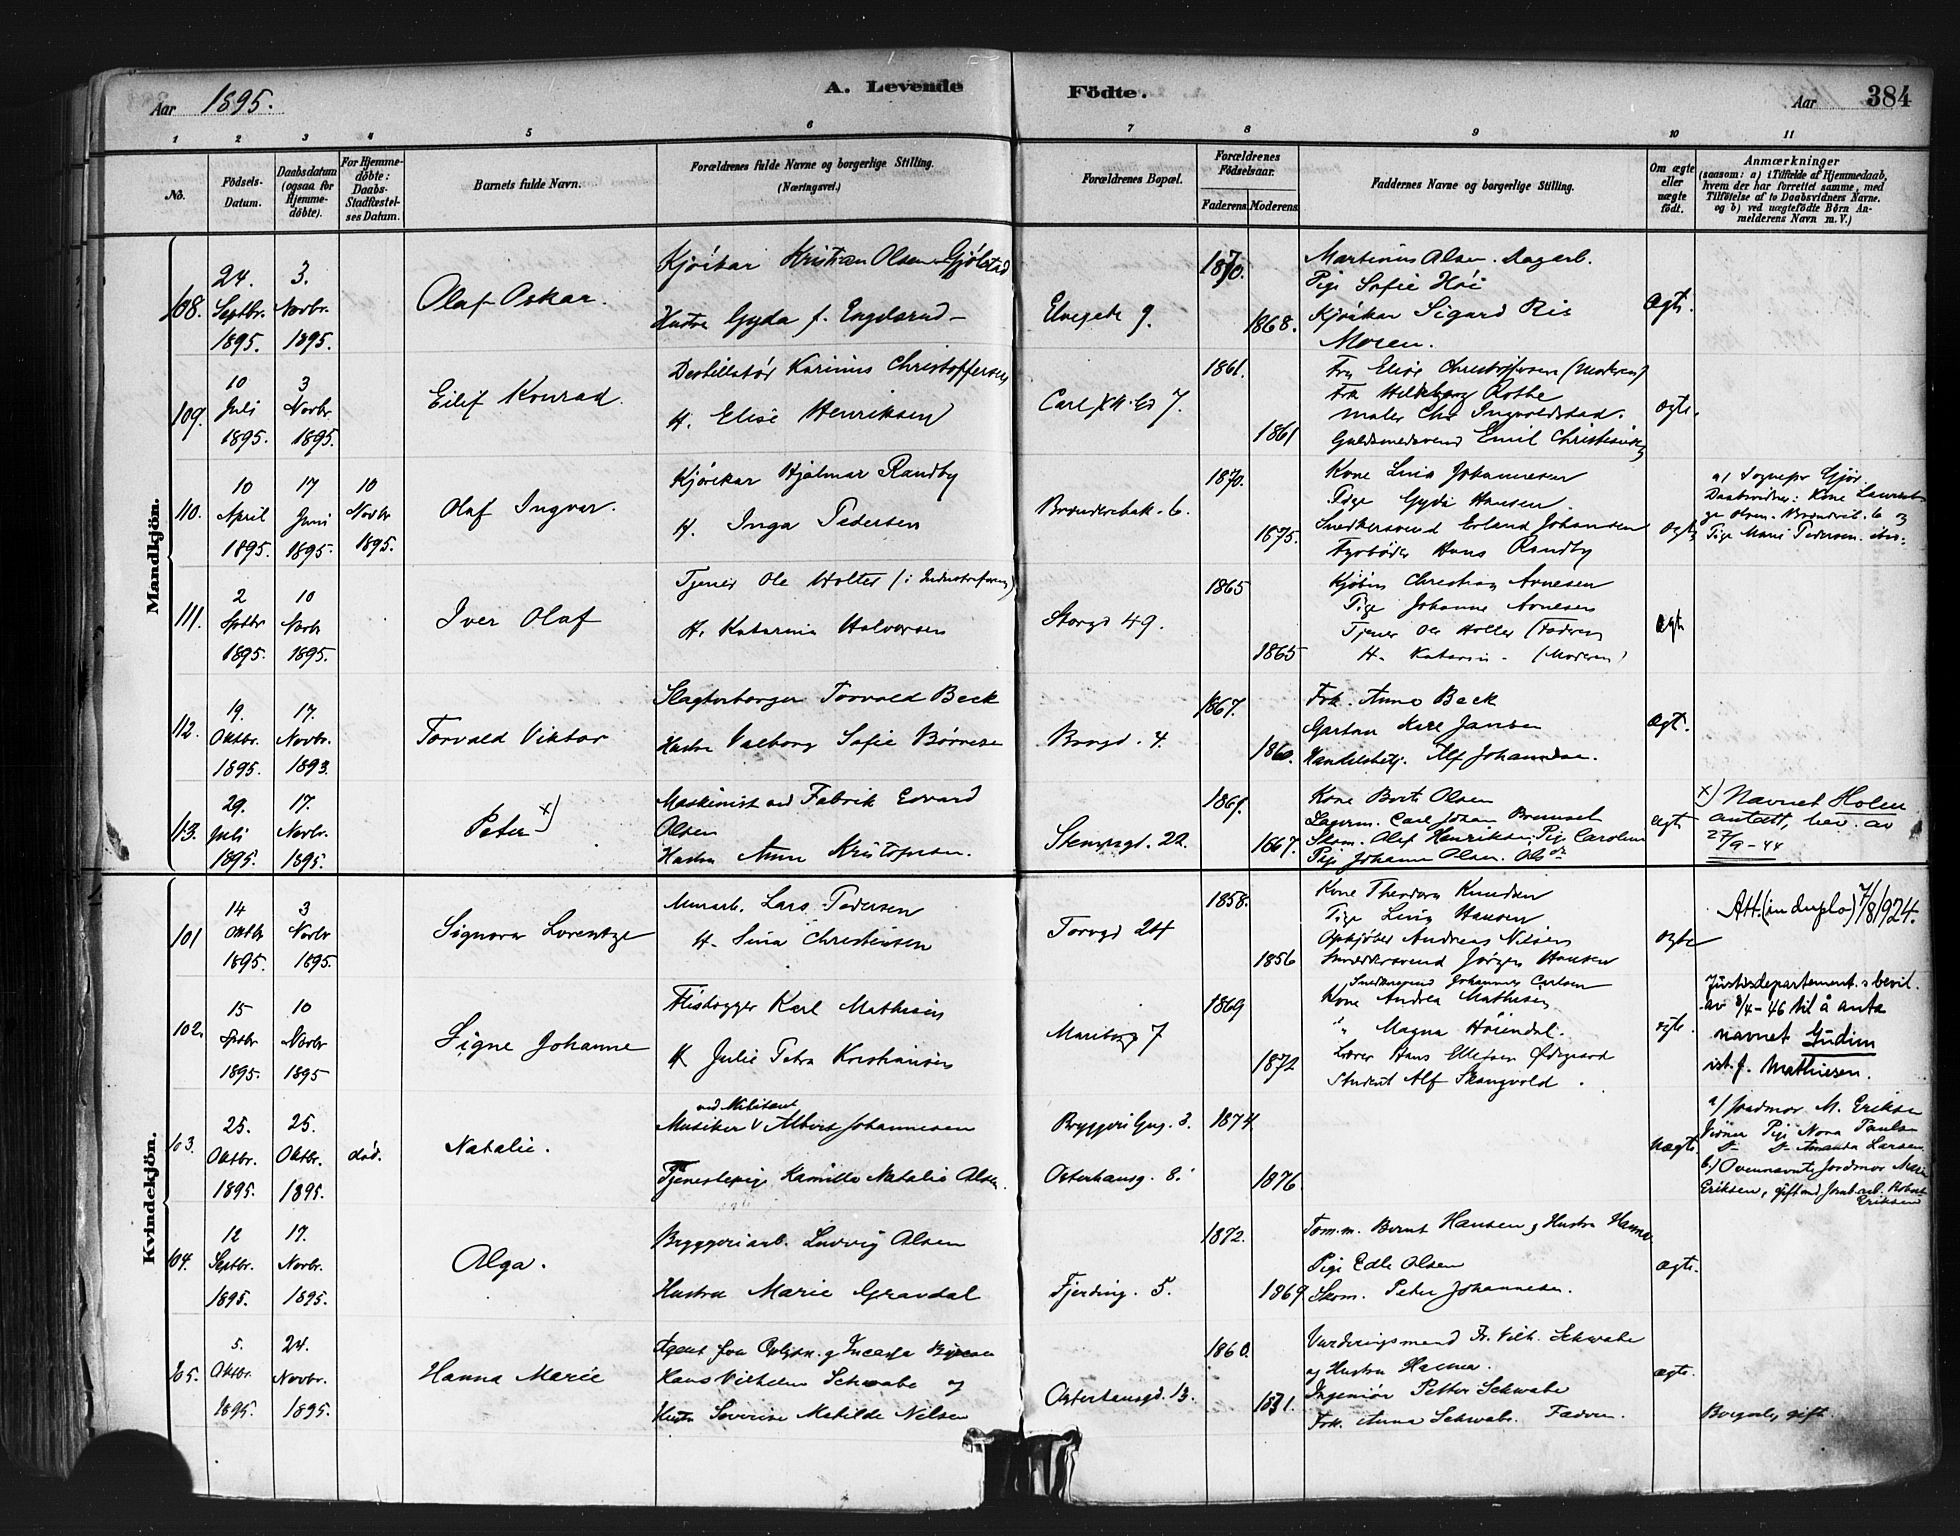 Aar 1895.
A. Levende
Födte.
Aar
384
1
2
3
4
5
6
7
8
9
10
11
No.
Födsels-
Datum.
Daabsdatum
(ogsaa for
Hjemme-
döbte).
For Hjemme-
döbte:
Daabs-
Stadfæstel-
ses Datum.
Barnets fulde Navn.
Forældrenes fulde Navne og borgerlige Stilling.
(Næringsvei.)
Forældrenes Bopæl.
Forældrenes
Födselsaar.
Faderens.
Moderens.
Faddernes Navne og borgerlige Stilling.
Om ægte
eller
uægte
födt.
Anmærkninger
(saasom: a) i Tilfælde af Hjemmedaab,
hvem der har forrettet samme, med
Tilföielse af to Daabsvidners Navne.
og b) ved uægtefödte Börn An-
melderens Navn m. V.)
Mandkjön.
108.
24.
Septbr.
1895.
3.
Novbr.
1895.
Olaf Oskar.
Kjørekar Kristian Olsen Gjölstad
Hustru Gyda f. Engelsrud
Elvegade 9.
1870.
1868.
Martinius Olsen. Dagarb.
Pige Sofie Höi
Kjørekar Sigurd Ris
Moren.
Ægte.
109.
10
Juli
1895.
3
Novbr.
1895.
Eilif Konrad.
Destillatør Karinius Christoffersen
H. Elise Henriksen
Carl XII. Gd 7.
1861.
1861
Fru Elise Christoffersen (Moderen)
Frk Rothe
Maler Chr Ingvoldstad.
Guldsmedsvend Emil Christensen
ægte.
110.
10
April
1895.
17
Juni
1895.
10
Novbr
1895.
Olaf Ingvar.
Kjørekar Hjalmar Randby
H. Inga Pedersen
Brønderebak. 6.
1870.
1875.
Kone Lina Johannesen
Pige Gyda Hansen.
Snedkersvend Erland Johansen
Fyrbøder Hans Randby
ægte
a) Sognepr Gjør.
Daabsvidner: Kone
Olsen. 6 og
Pige Marie Pedersen. ibid.
111.
2
Sptbr
1895.
10
Novbr
1895.
Iver Olaf
Tjener Ole Holter (i Industriforening)
H. Katarina Halvorsen
Storgd 49.
1865
1865
Kjøbm Christian Arnesen
Pige Johanne Arnesen
Tjener Ole Holter (Faderen)
H. (Moderen)
Ægte
112.
19.
Oktbr.
1895.
17.
Novbr.
1893.
Torvald Viktor
Slagterborger Torvald Beck
Hustru Valborg Sofie Børresen
Brogd. 4.
1867.
1860.
Frk. Anna Beck
Gartner Karl Jansen
Handelsbetj. Alf Johannesen.
Ægt.
113.
29.
Juli
1895.
17.
Novbr.
1895.
Peter x)
Maskinist ved Fabrik Edvard
Olsen
Hustru Anna Kristofersen.
Stensgd. 22.
1867.
1667.
Kone Berte Olsen
Lagerm. Carl Johan
Skom. Olaf Henriksen, Pige Caroline
Pige Johanne Olsen.
Ægte
x) Navnet Holen
antatt, bev. av
27/9-44
Kvindekjön.
101
14
Oktbr
1895.
3
Novbr
1895.
Signora Lorentze
Murarb. Lars Pedersen
H. Sina Christensen
Torvgd 24
1858.
1856
Kone Theodora Knudsen
Pige Lina Hansen
Opkjøber Andreas Nilsen
Snedkersvend Jørgen Hansen
Snedkersvend Johannes Carlsen
ægte
Att. (in duplo) 7/8 1924.
102.
15
Sptbr
1895.
10
Novbr
1895
Signe Johanne
Flishugger Karl Mathisen
H Julie Petra Kristiansen
Maribog. 7
1869
1872
Kone Andrea Mathisen
" Magna Høiendal.
Lærer Hans Ellefsen Ødegaard
Student Alf Skangvold.
ægte.
Justisdepartement.s bevil.
av 8/4-46 til å anta
navnet Gudim
ist.f. Mathiesen.
103.
25.
Oktbr.
1895.
25.
Oktbr.
1895.
død.
Natalie.
ved Militæret
Musiker V Albert Johannesen
Tjenestepige Kamilla Natalie Olsen.
Bryggerigng. 3.
Osterhausg. 8.
1874.
1876.
Uægte.
a) Jordmor M. Eriksen
Vidner Pige Nora Paulsen
" " Amanda Larsen
b.) Ovennævnte Jordmor Marie
Eriksen, gift med Jernb.arb. Robert
Eriksen
104.
12
Septbr.
1895.
17.
Novbr.
1895.
Alga.
Bryggeriarb. Ludvig Olsen
Hustru Marie Gravdal
Fjerding. 5.
1872.
1869.
Tom.m. Bernt Hansen og Hustru Hanna
Pige Edle Olsen
Skom. Peter Johannesen.
Ægte.
105.
5.
Oktbr.
1895.
24.
Novbr.
1895.
Hanna Marie
Agent for
Hans Vilhelm Schwabe og
Hustru Severine Matilde Nilsen
Osterhausgd. 13.
1860.
1831.
Vurderingsmand Fr. Vilh. Schwabe
og Hustru Hanna.
Ingeniør Petter Schwabe
Frk. Anna Schwabe. Faderen.
Ægte.
Borgerlig gift.